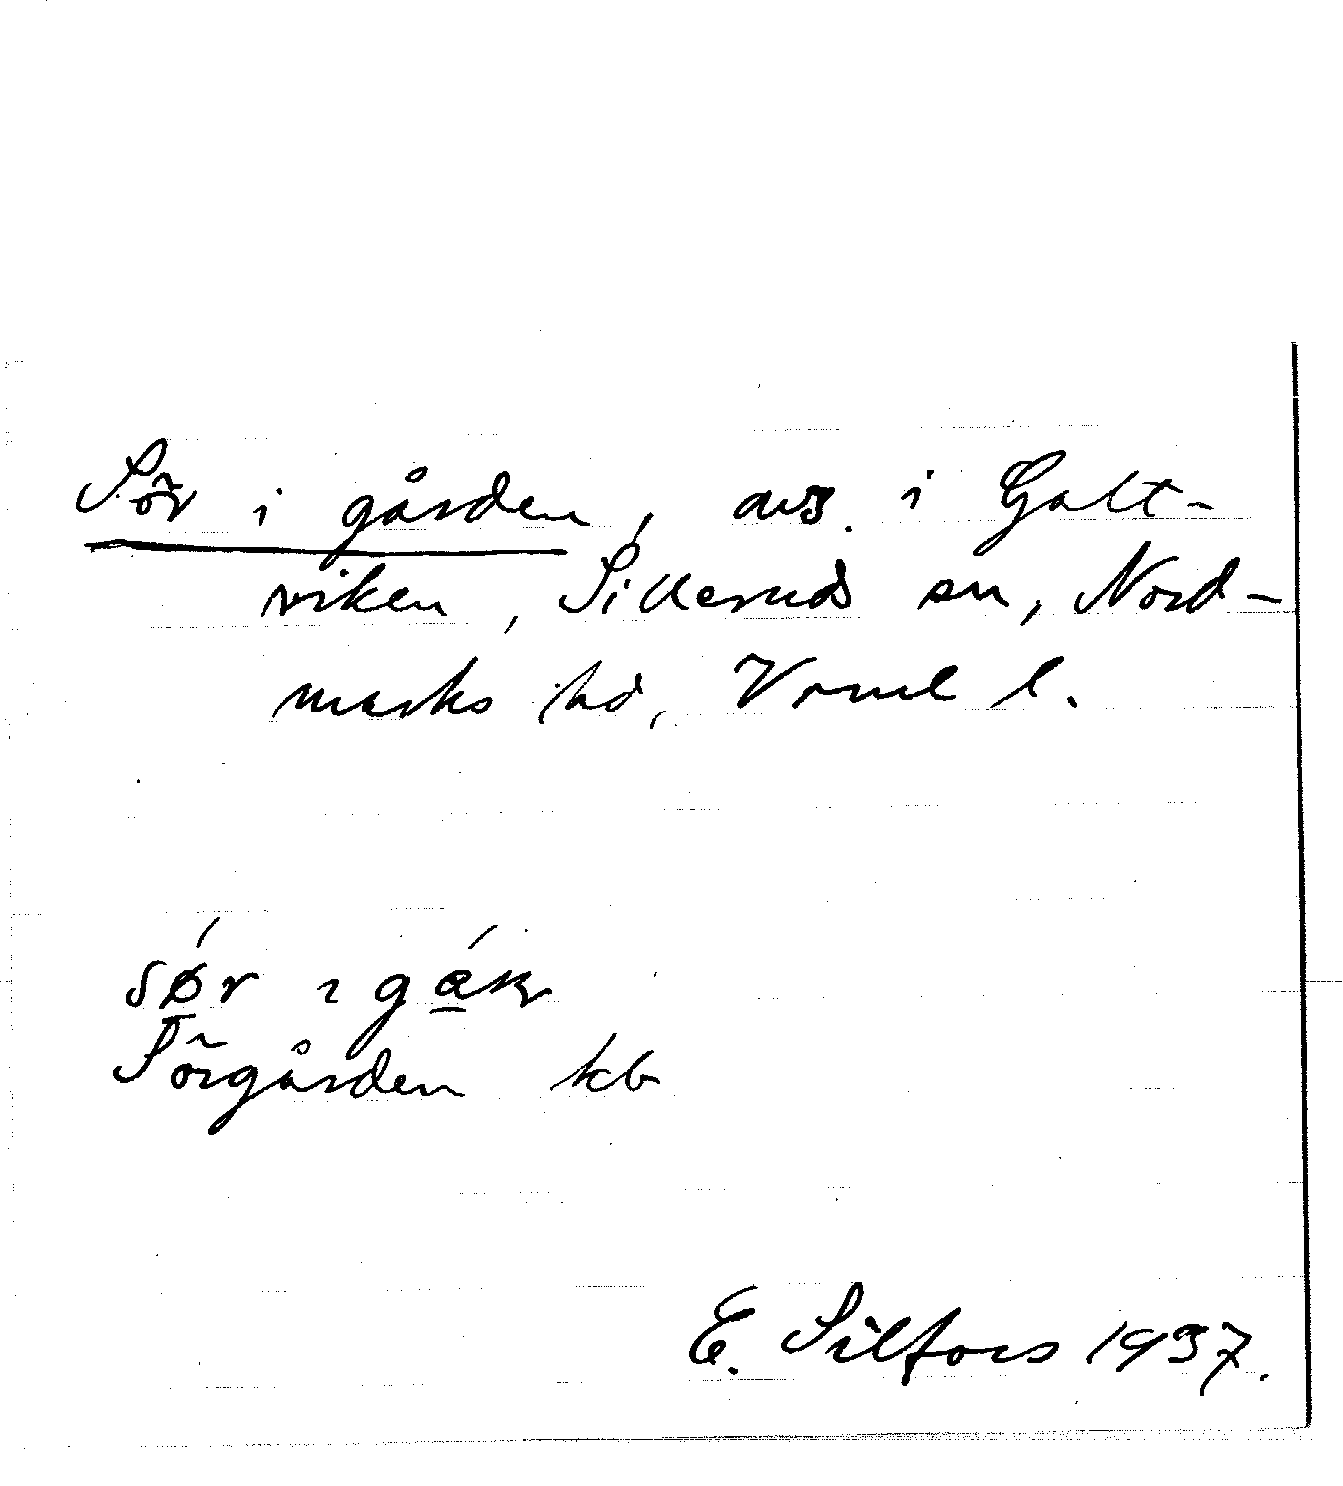 Sör i gården, avs. i Galt-
viken, Silleruds sn, Nord-
marks hd, Vrml l.
sør ı
Sörgården kb
E. Silfors 1937.